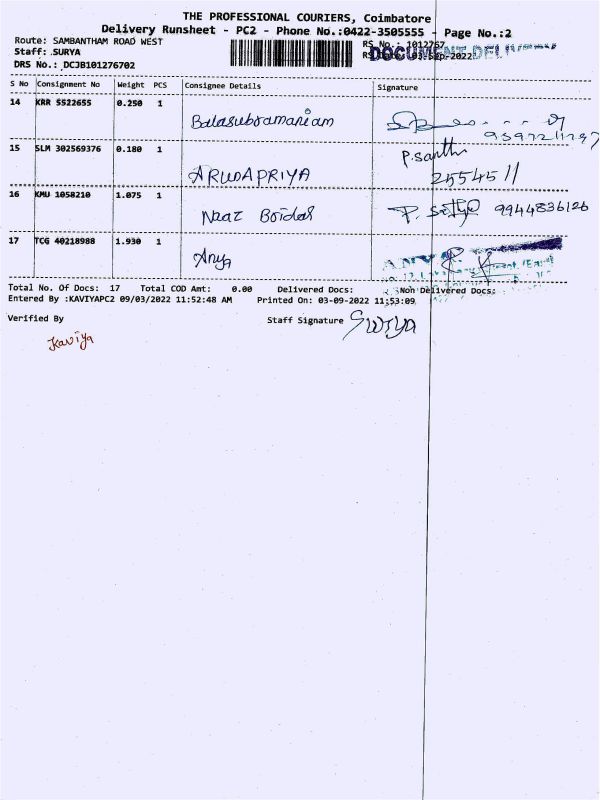 THE PROFESSIONAL COURIERS, Coimbatore
Delivery Runsheet - PC2 - Phone No.:0422-3505555 - Page No.:2
Route: SAMBANTHAM ROAD WEST
RS No.: 1012767
DOCUMENT DELIVERY
Staff: SURYA
03-Sep-2022
DRS No.: DCJB101276702
S No Consignment No Weight PCS Consignee Details Signature
14 KRR 5522655 0.250 1
Balasubramaniam
15 SLM 302569376 0.180 1
P.santhi
ARUDAPRIYA 2554511
16 KMU 1058210 1.075 1
Naaz Boidas 9944836126
17 TCG 40218988 1.930 1
Anya
Total No. Of Docs: 17 Total COD Amt: 0.00 Delivered Docs: Non Delivered Docs:
Entered By :KAVIYAPC2 09/03/2022 11:52:48 AM Printed On: 03-09-2022 11:53:09
Verified By Staff Signature Surya
Kaviya